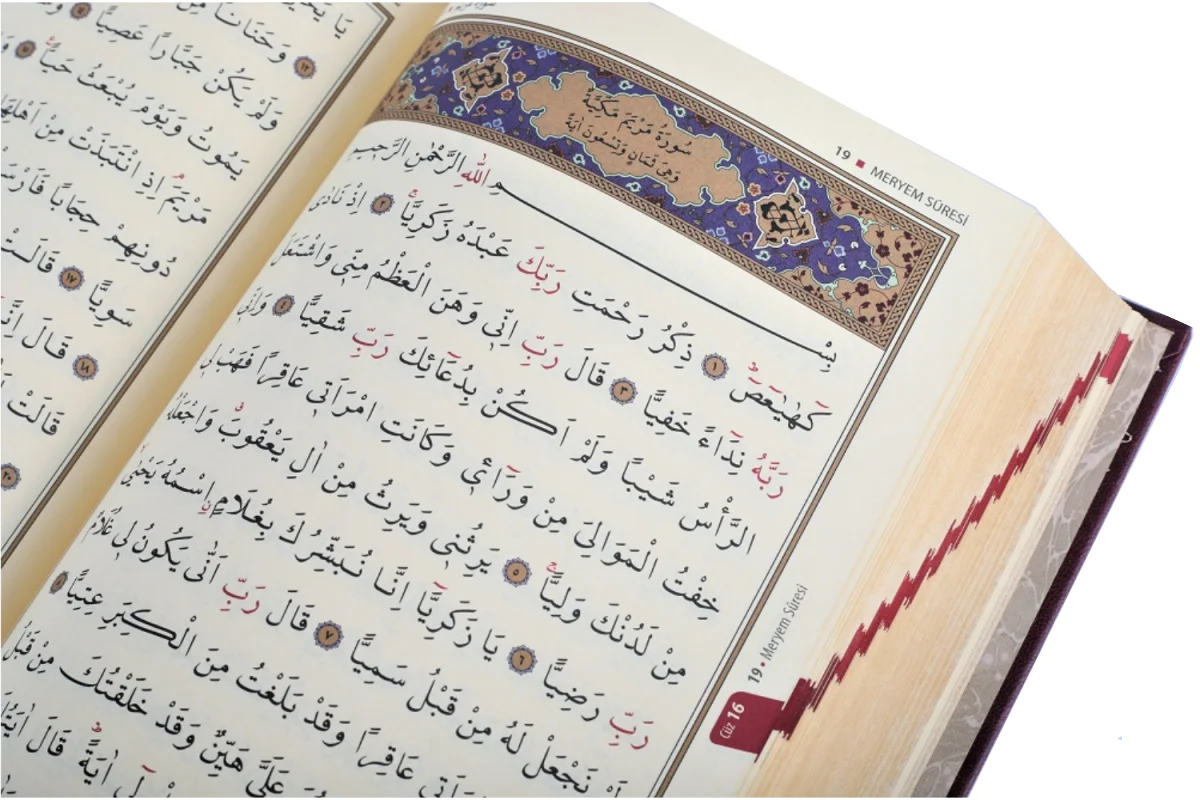 19 ▪ MERYEM SÛRESİ
سُورَةُ مَرْيَمَ مَكِّيَّةٌ
وَهِىَ ثَمَانٍ وَتِسْعُونَ اٰيَةً
بِسْمِ اللّٰهِ الرَّحْمٰنِ الرَّحٖيمِ
كٓهٰيٰعٓصٓۜ ١ ذِكْرُ رَحْمَتِ رَبِّكَ عَبْدَهُ زَكَرِيَّاۚ ٢ اِذْ نَادٰى
رَبَّهُ نِدَٓاءً خَفِيًّا ٣ قَالَ رَبِّ اِنّٖى وَهَنَ الْعَظْمُ مِنّٖى وَاشْتَعَلَ
الرَّأْسُ شَيْبًا وَلَمْ اَكُنْ بِدُعَٓائِكَ رَبِّ شَقِيًّا ٤ وَاِنّٖى
خِفْتُ الْمَوَالِىَ مِنْ وَرَٓاءٖى وَكَانَتِ امْرَاَتٖى عَاقِرًا فَهَبْ لٖى
مِنْ لَدُنْكَ وَلِيًّاۙ ٥ يَرِثُنٖى وَيَرِثُ مِنْ اٰلِ يَعْقُوبَۗ وَاجْعَلْهُ
رَبِّ رَضِيًّا ٦ يَا زَكَرِيَّٓا اِنَّا نُبَشِّرُكَ بِغُلَامٍۨ اسْمُهُ يَحْيٰىۙ
نَجْعَلْ لَهُ مِنْ قَبْلُ سَمِيًّا ٧ قَالَ رَبِّ اَنّٰى يَكُونُ لٖى غُلَامٌ
عَاقِرًا وَقَدْ بَلَغْتُ مِنَ الْكِبَرِ عِتِيًّا ٨
عَلَىَّ هَيِّنٌ وَقَدْ خَلَقْتُكَ مِنْ قَبْلُ
اٰيَةًۜ قَالَ
19 • Meryem Sûresi
Cüz 16
يَا
١٢ وَحَنَانًا
وَلَمْ يَكُنْ جَبَّارًا عَصِيًّا
يَمُوتُ وَيَوْمَ يُبْعَثُ حَيًّا
مَرْيَمَۢ اِذِ انْتَبَذَتْ مِنْ اَهْلِهَا
دُونِهِمْ حِجَابًا
سَوِيًّا ١٧ قَالَتْ
١٨ قَالَ
قَالَتْ
٢٠